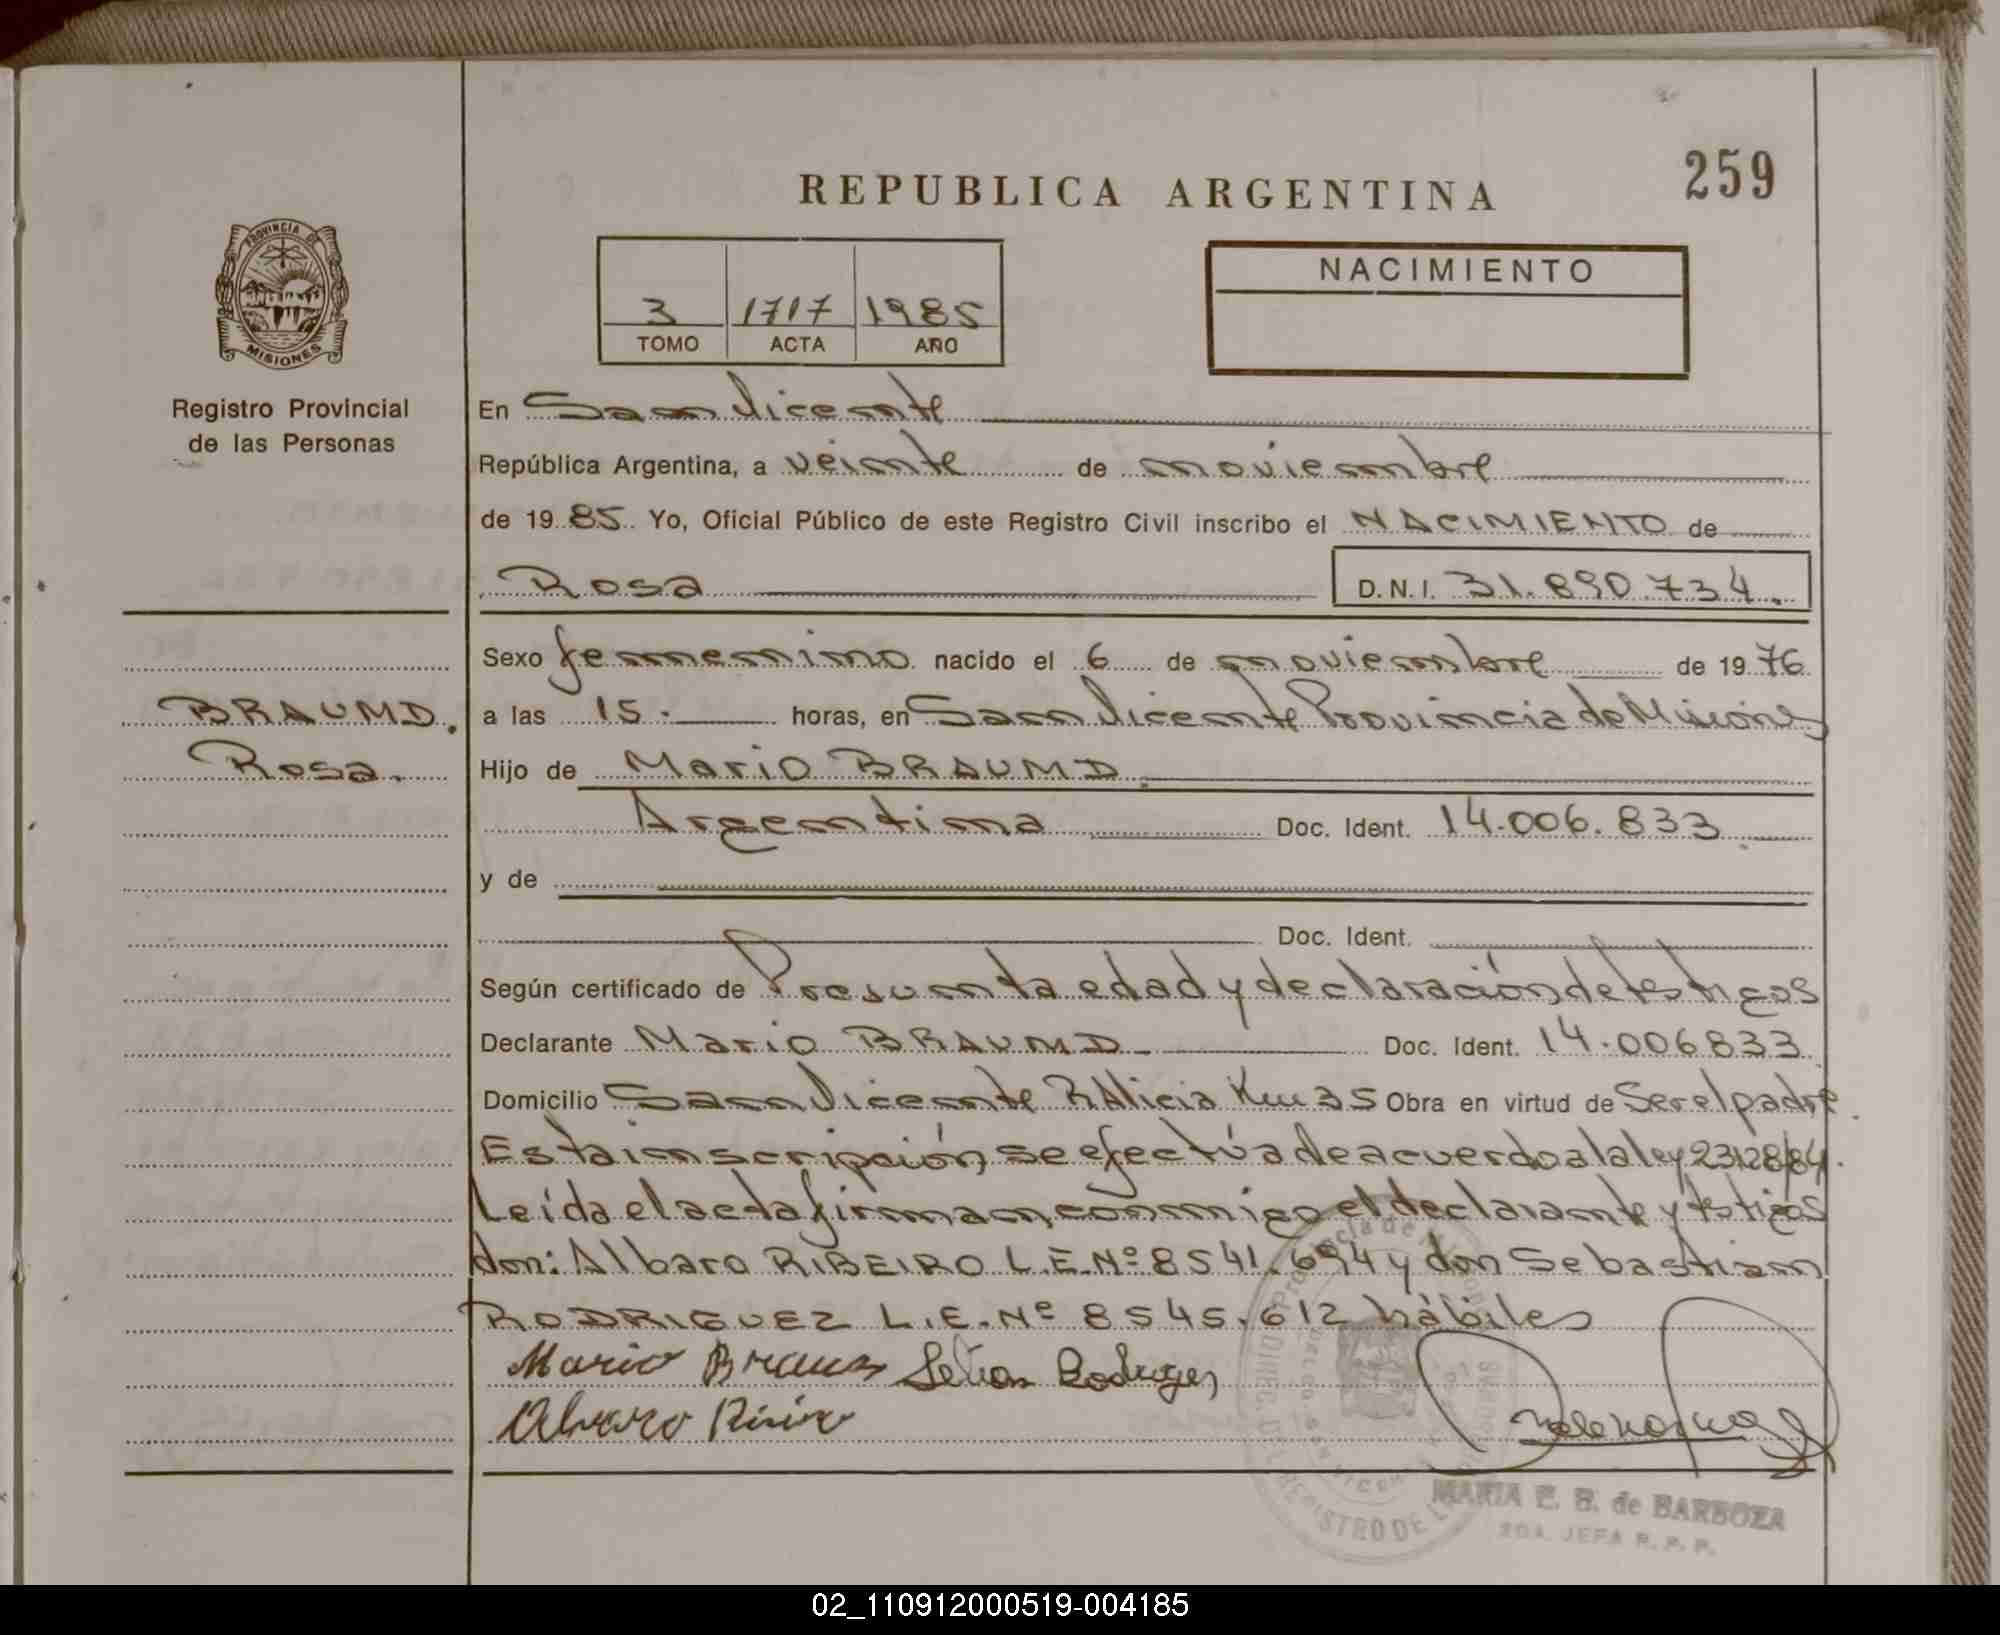 REPUBLICA ARGENTINA
259
PROVINCIA DE
MISIONES
Registro Provincial
de las Personas
3 1717 1985
TOMO ACTA AÑO
NACIMIENTO
En San Vicente
República Argentina, a veinte de noviembre
de 19 85 Yo, Oficial Público de este Registro Civil inscribo el NACIMIENTO de
Rosa D.N.I. 31.890.734.
Sexo femenino nacido el 6 de noviembre de 19 76
BRAUND.
Rosa.
a las 15. horas, en San Vicente Provincia de Misiones
Hijo de Mario BRAUND
Argentina Doc. Ident. 14.006.833
y de
Doc. Ident.
Según certificado de Presunta edad y declaración de testigos
Declarante Mario BRAUND Doc. Ident. 14.006833
Domicilio San Vicente R Alicia Km 35 Obra en virtud de Ser el padre
Esta inscripción se efectúa de acuerdo a la ley 23128/84.
Leída el acta firman conmigo el declarante y testigos
don: Albaro RIBEIRO L.E.Nº 8541.694 y don Sebastian
RODRIGUEZ L.E.Nº 8545.612 hábiles
Mario
Alvaro
MARIA E. B. de BARBOZA
2DA. JEFA R. P. P.
02_110912000519-004185